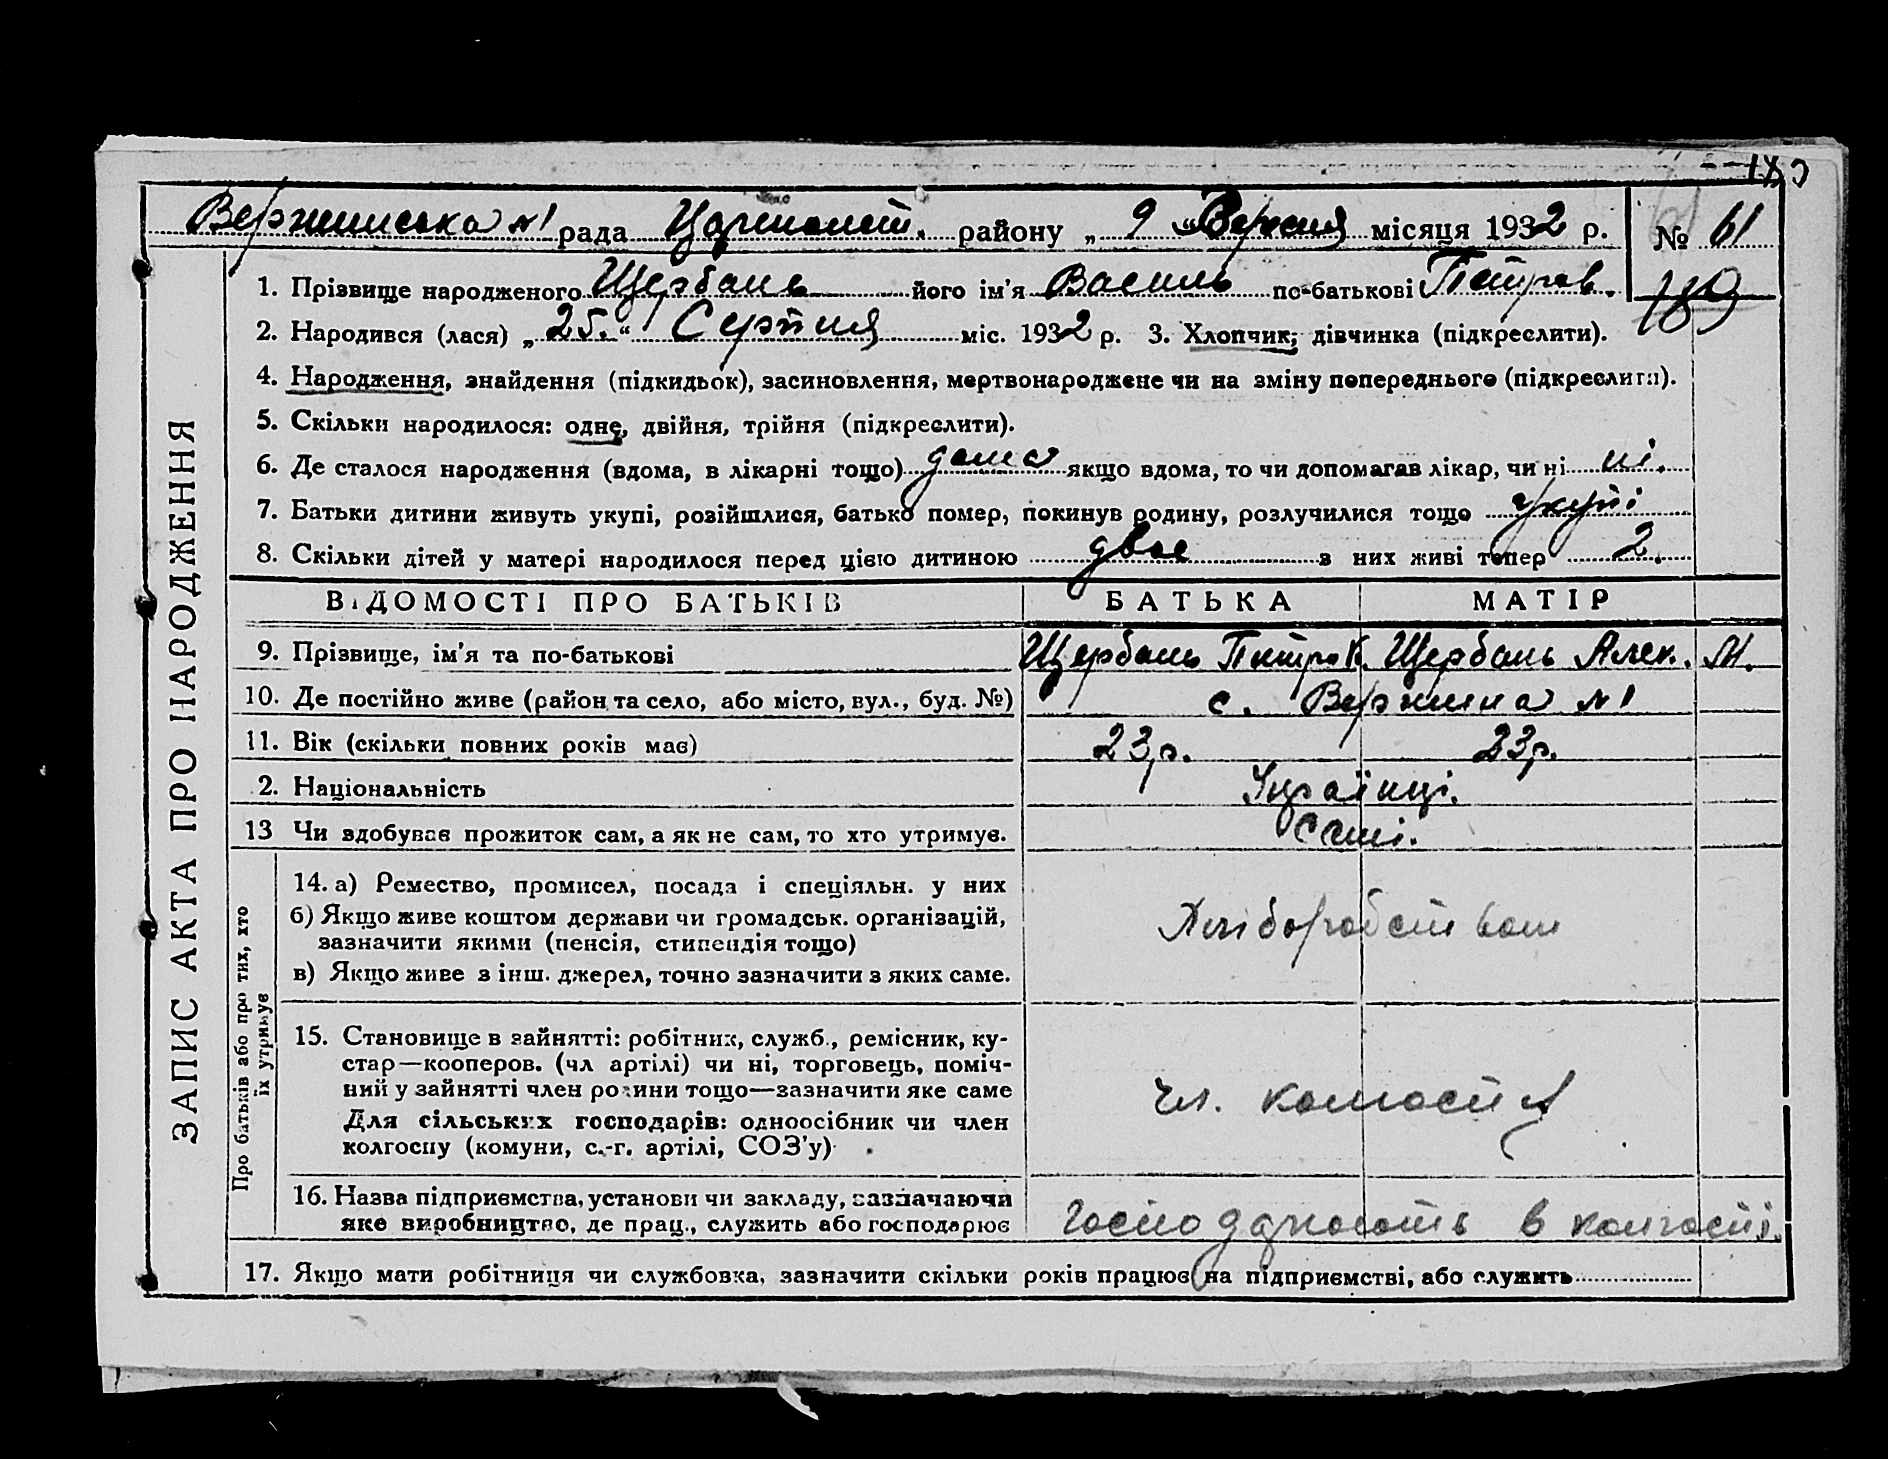 Вержинська №1 рада район у „ 9 “ Вересня місяця 1932 р. № 61
1. Прізвище народженого Щербань його ім’я Василь по-батькові Петров.
2. Народився (лася) „ 25. “ Серпня міс. 1932 р. 3. Хлопчик, дівчинка (підкреслити).
4. Народження, знайдення (підкидьок), засиновлення, мертвонароджене чи на зміну попереднього (підкреслити).
5. Скільки народилося: одне, двійня, трійня (підкреслити).
6. Де сталося народження (вдома, в лікарні тощо) дома якщо вдома, то чи допомагав лікар, чи ні ні.
7. Батьки дитини живуть укупі, розійшлися, батько помер, покинув родину, розлучилися тощо укупі
8. Скільки дітей у матері народилося перед цією дитиною двоє з них живі тепер 2.
ЗАПИС АКТА ПРО НАРОДЖЕННЯ
ВІДОМОСТІ ПРО БАТЬКІВ БАТЬКА МАТІР
9. Прізвище, ім’я та по-батькові Щербань Петро К. Щербань Алек. М.
10. Де постійно живе (район та село, або місто, вул., буд. №) с. Вержина №1
11. Вік (скільки повних років має) 23р. 23р.
2. Національність Українці.
13 Чи здобував прожиток сам, а як не сам, то хто утримує. Самі.
Про батьків або про тих, хто
їх утримує
14. а) Ремество, промисел, посада і спеціяльн. у них
б) Якщо живе коштом держави чи громадськ. організацій,
зазначити якими (пенсія, стипендія тощо)
в) Якщо живе з інш. джерел, точно зазначити з яких саме.
Хліборобством
15. Становище в зайнятті: робітник, служб., ремісник, ку-
стар—кооперов. (чл артілі) чи ні, торговець, поміч-
ний у зайнятті член родини тощо—зазначити яке саме
Для сільських господарів: одноосібник чи член
колгоспу (комуни, с.-г. артілі, СОЗ’у)
чл. колгоспу
16. Назва підприємства, установи чи закладу, зазначаючи
яке виробництво, де прац., служить або господарює
господарюють в колгоспі.
17. Якщо мати робітниця чи службовка, зазначити скільки років працює на підприємстві, або служить